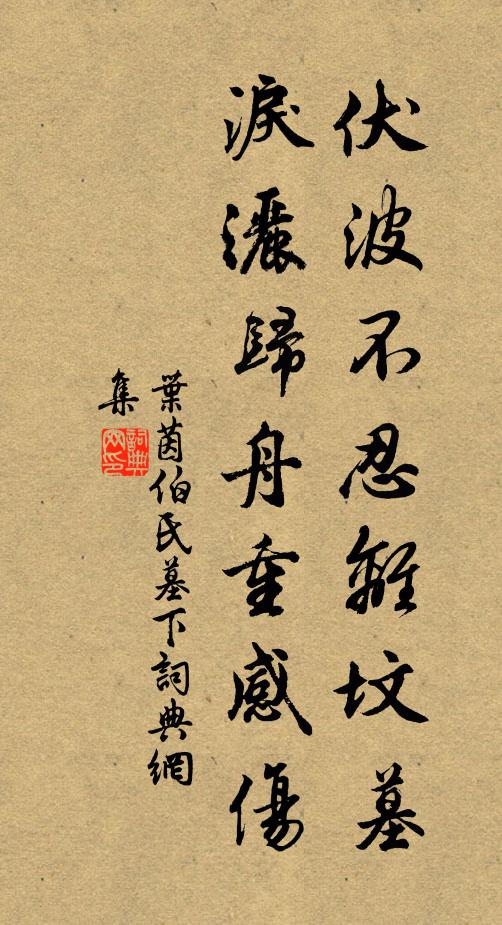 伏波不忍離墳墓
淚灑歸舟重感傷
葉茵伯氏墓下詞典網
集
詞典
网印